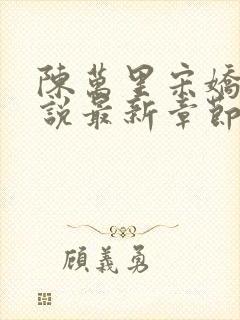 陳萬里宋嬌
說最新章節
顧義勇